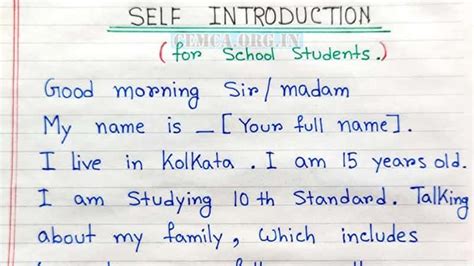 SELF INTRODUCTION
GEMCA.ORG.IN
(for School Students.)
Good morning Sir/madam
My name is _ [Your full name].
I live in Kolkata. I am 15 years old.
I am Studying 10th Standard. Talking
about my family, which includes